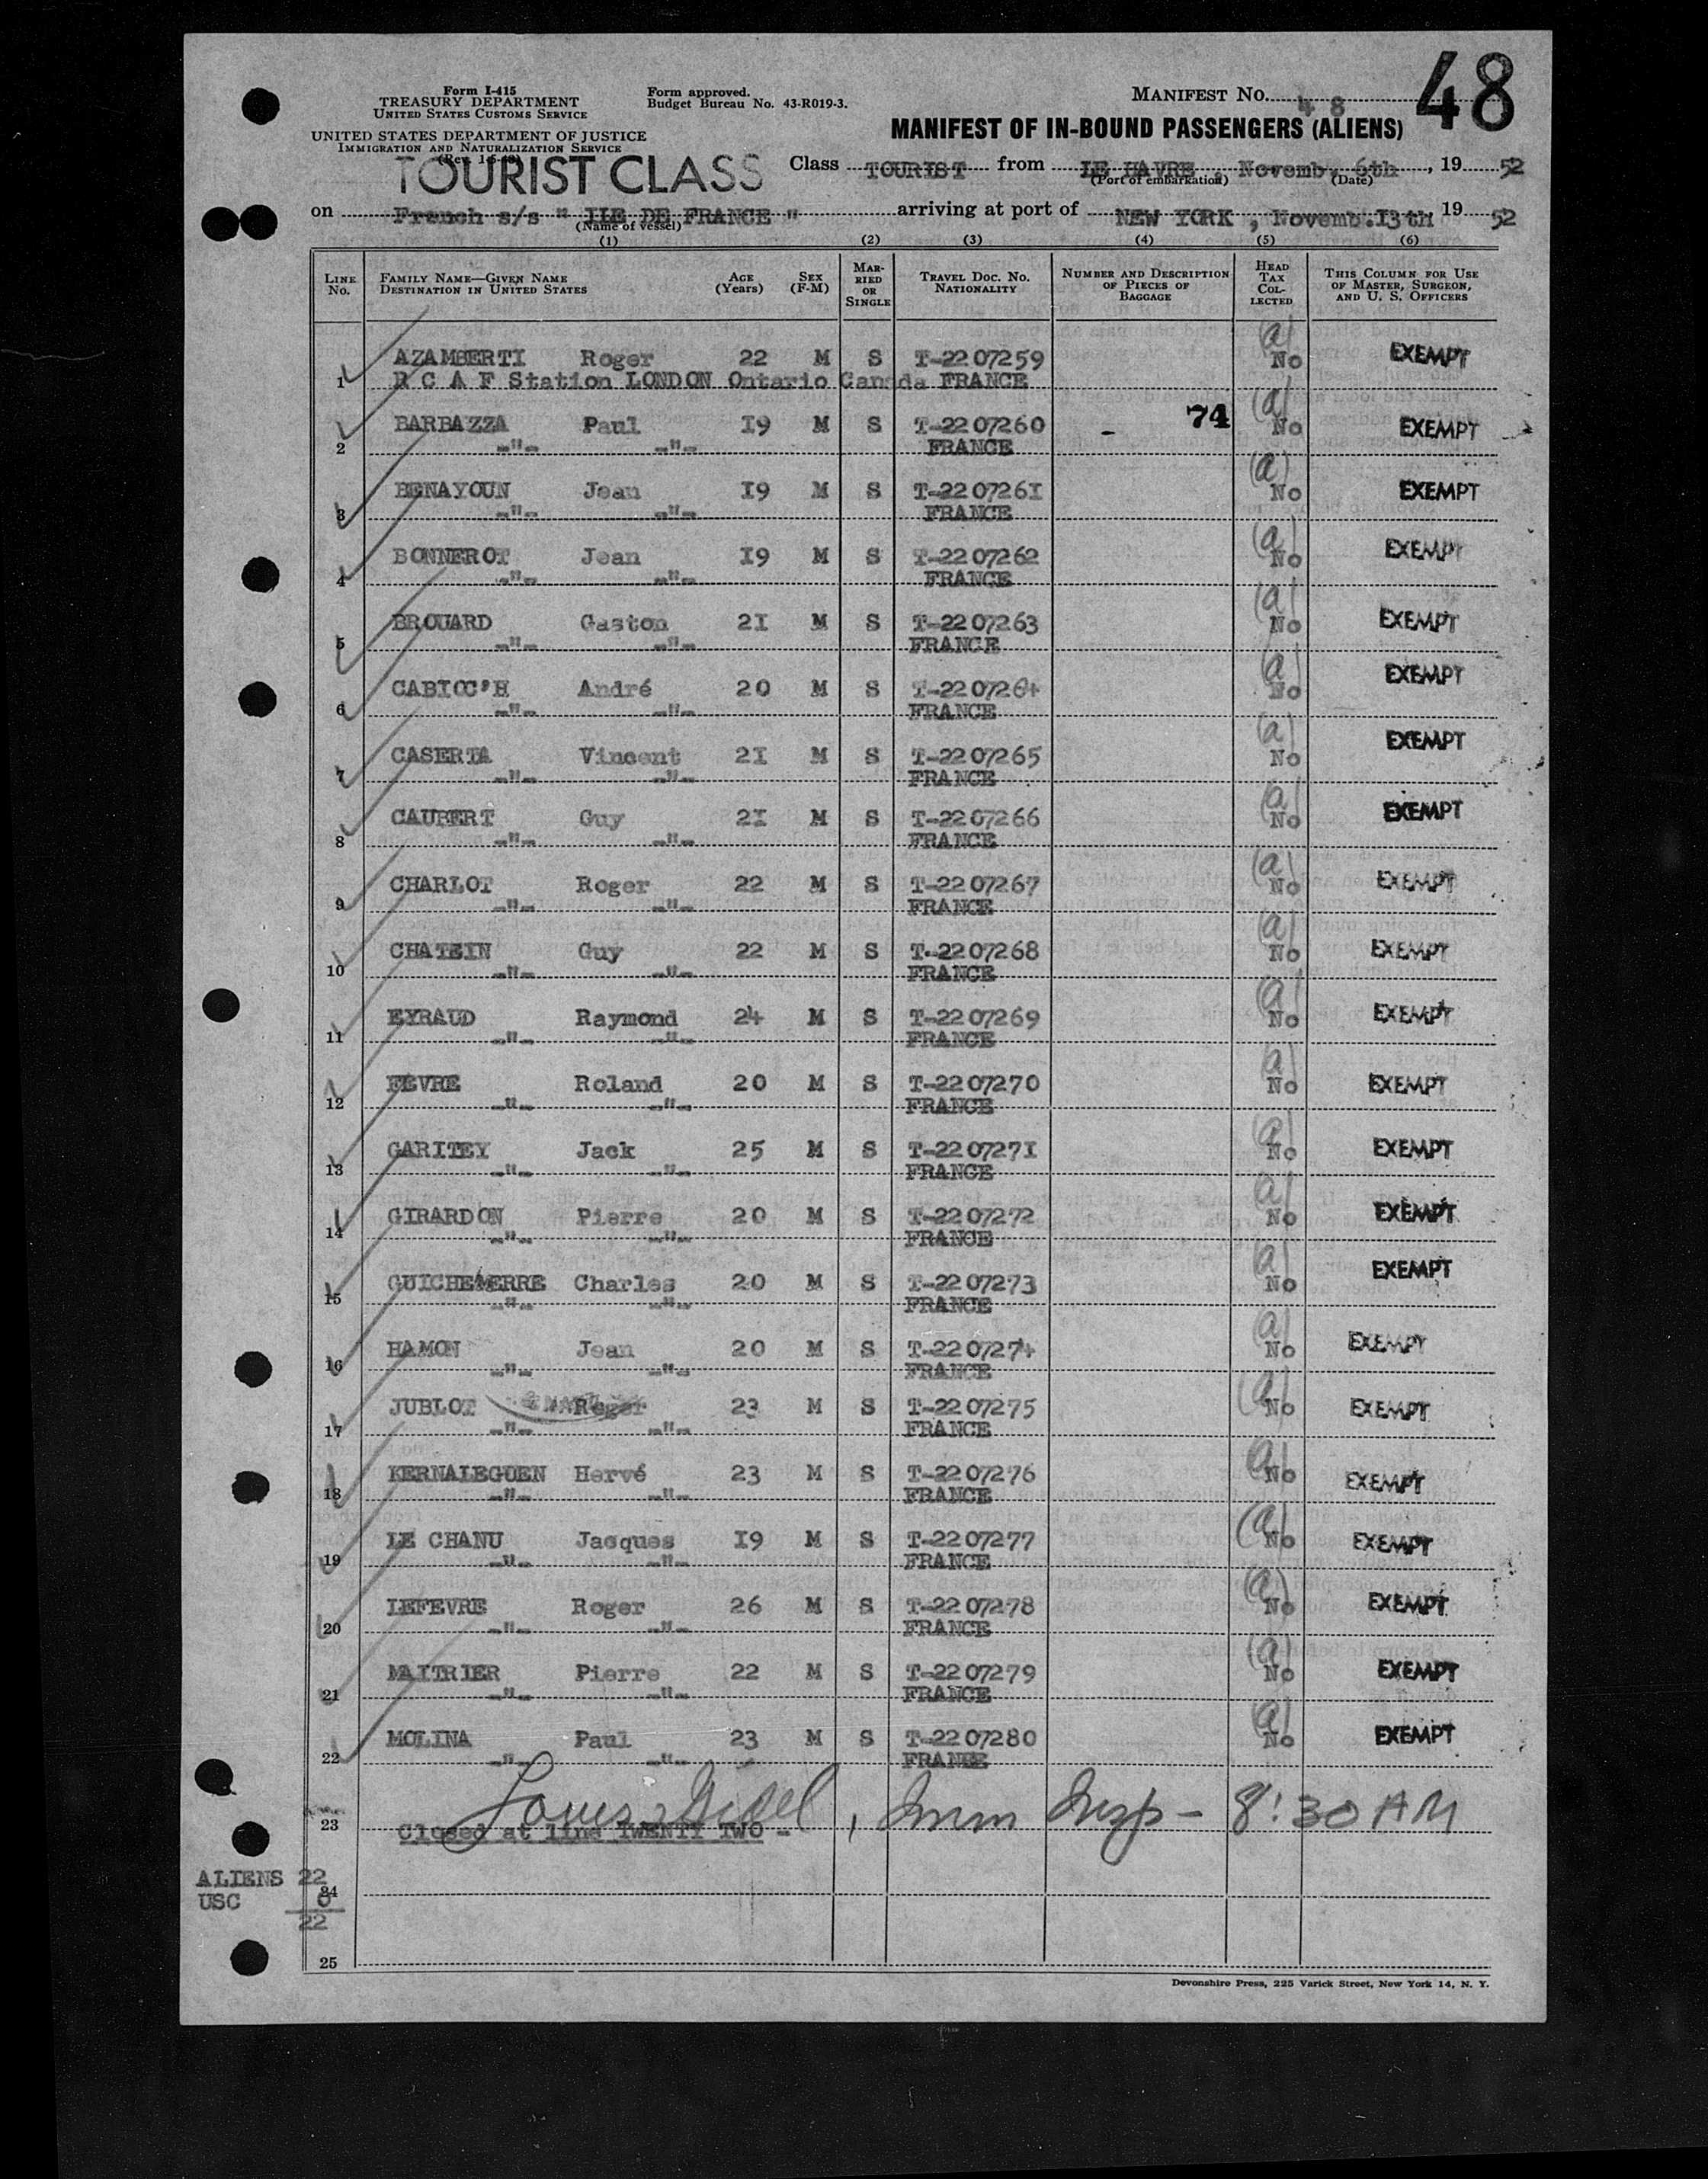 48
Form I-415
TREASURY DEPARTMENT
UNITED STATES CUSTOMS SERVICE
Form approved.
Budget Bureau No. 43-R019-3.
MANIFEST NO. 48
UNITED STATES DEPARTMENT OF JUSTICE
IMMIGRATION AND NATURALIZATION SERVICE
MANIFEST OF IN-BOUND PASSENGERS (ALIENS)
TOURIST CLASS
Class TOURIST from LE HAVRE, Novemb. 6th, 1952
(Port of embarkation) (Date)
on French s/s " ILE DE FRANCE " arriving at port of NEW YORK, Novemb.13th 1952
(Name of vessel)
(1) (2) (3) (4) (5) (6)
LINE No. FAMILY NAME—GIVEN NAME DESTINATION IN UNITED STATES AGE (Years) SEX (F-M) MARRIED OR SINGLE TRAVEL DOC. NO. NATIONALITY NUMBER AND DESCRIPTION OF PIECES OF BAGGAGE HEAD TAX COLLECTED THIS COLUMN FOR USE OF MASTER, SURGEON, AND U. S. OFFICERS
AZAMBERTI Roger 22 M S T-22 07259 (a) No EXEMPT
1 R C A F Station LONDON Ontario Canada FRANCE
BARBAZZA Paul 19 M S T-22 07260 - 74 (a) No EXEMPT
2 -"- -"- FRANCE
BENAYOUN Jean 19 M S T-22 07261 (a) No EXEMPT
3 -"- -"- FRANCE
BONNEROT Jean 19 M S T-22 07262 (a) No EXEMPT
4 -"- -"- FRANCE
BROUARD Gaston 21 M S T-22 07263 (a) No EXEMPT
5 -"- -"- FRANCE
CABIOC'H André 20 M S T-22 07264 (a) No EXEMPT
6 -"- -"- FRANCE
CASERTA Vincent 21 M S T-22 07265 (a) No EXEMPT
7 -"- -"- FRANCE
CAUBERT Guy 21 M S T-22 07266 (a) No EXEMPT
8 -"- -"- FRANCE
CHARLOT Roger 22 M S T-22 07267 (a) No EXEMPT
9 -"- -"- FRANCE
CHATEIN Guy 22 M S T-22 07268 (a) No EXEMPT
10 -"- -"- FRANCE
EYRAUD Raymond 24 M S T-22 07269 (a) No EXEMPT
11 -"- -"- FRANCE
FEVRE Roland 20 M S T-22 07270 (a) No EXEMPT
12 -"- -"- FRANCE
GARITEY Jack 25 M S T-22 07271 (a) No EXEMPT
13 -"- -"- FRANCE
GIRARDON Pierre 20 M S T-22 07272 (a) No EXEMPT
14 -"- -"- FRANCE
GUICHEMERRE Charles 20 M S T-22 07273 (a) No EXEMPT
15 -"- -"- FRANCE
HAMON Jean 20 M S T-22 07274 (a) No EXEMPT
16 -"- -"- FRANCE
JUBLOT Roger 23 M S T-22 07275 (a) No EXEMPT
17 -"- -"- FRANCE
KERNALEGUEN Hervé 23 M S T-22 07276 (a) No EXEMPT
18 -"- -"- FRANCE
LE CHANU Jacques 19 M S T-22 07277 (a) No EXEMPT
19 -"- -"- FRANCE
LEFEVRE Roger 26 M S T-22 07278 (a) No EXEMPT
20 -"- -"- FRANCE
MAITRIER Pierre 22 M S T-22 07279 (a) No EXEMPT
21 -"- -"- FRANCE
MOLINA Paul 23 M S T-22 07280 (a) No EXEMPT
22 -"- -"- FRANCE
Louis, Imm Insp - 8:30 AM
23 Closed at line TWENTY TWO -
ALIENS 22
24
USC 0
22
25
Devonshire Press, 225 Varick Street, New York 14, N. Y.